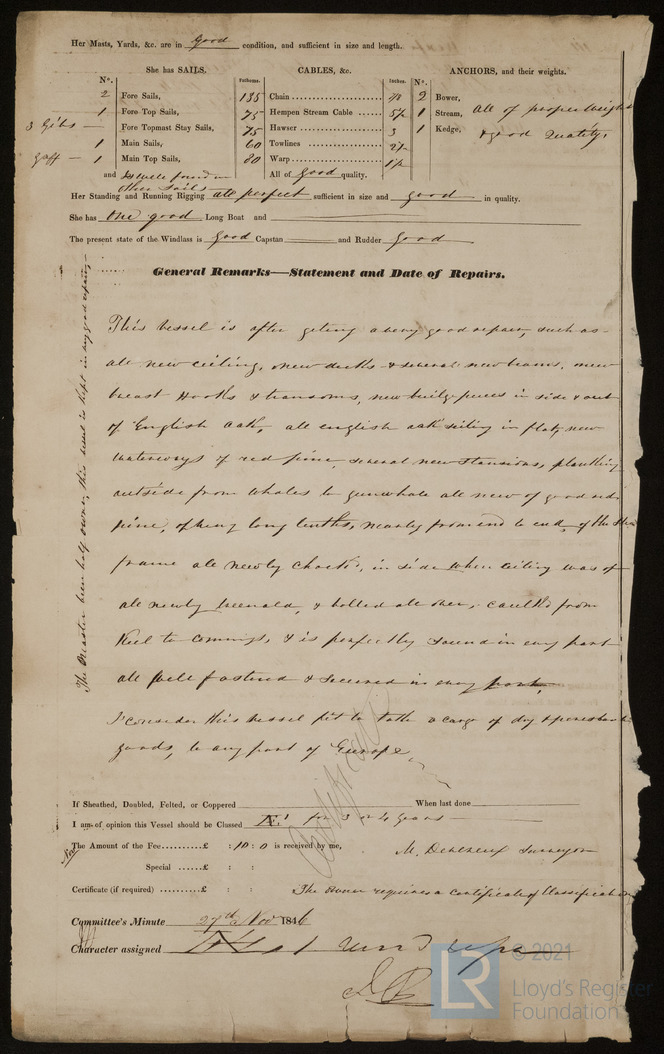 Her Masts, Yards, &c. are in good condition, and sufficient in size and length.
She has SAILS.
CABLES, &c.
ANCHORS, and their weights.
No. Fathoms. Inches. No.
2 Fore Sails, 135 Chain 2 Bower,
1 Fore Top Sails, 75 Hempen Stream Cable 1 Stream, all of proper weight
3 Gibs — Fore Topmast Stay Sails, 75 Hawser 3 1 Kedge, & good Quality,
1 Main Sails, 60 Towlines
gaff — 1 Main Top Sails, 80 Warp
and is well found in other Sails All of good quality.
Her Standing and Running Rigging all perfect sufficient in size and good in quality.
She has One good Long Boat and
The present state of the Windlass is Good Capstan and Rudder Good
General Remarks—Statement and Date of Repairs.
This vessel is after geting a very good repair, such as
all new ceiling, new decks & several new beams, new
breast Hooks & transoms, new bulge pieces in side & out
of English oak, all english oak in flat, new
waterways of red pine, several new stansions, plankking
outside from Whales to gunwhale all new of good red
pine, of very long lenths, nearly from end to end, of the
frame all newly chockt, in side when ceiling was of
all newly treenald, & bolted all over, caulkt from
Keel to comings, & is perfectly sound in every part
all well fastened & secured in every part,
I consider this vessel fit to take a cargo of dry & perishable
goods, to any part of Europe
The Master been half owner, this vessel is kept in very good repair
Certificate
If Sheathed, Doubled, Felted, or Coppered When last done
I am of opinion this Vessel should be Classed Æ.1 for 3 or 4 years
The Amount of the Fee £ : 10 : 0 is received by me, Surveyor
Special £ : :
Certificate (if required) £ : : The owner requires a Certificate of Classification
Committee's Minute 27th Nov 1846
Character assigned
LR
© 2021
Lloyd's Register
Foundation